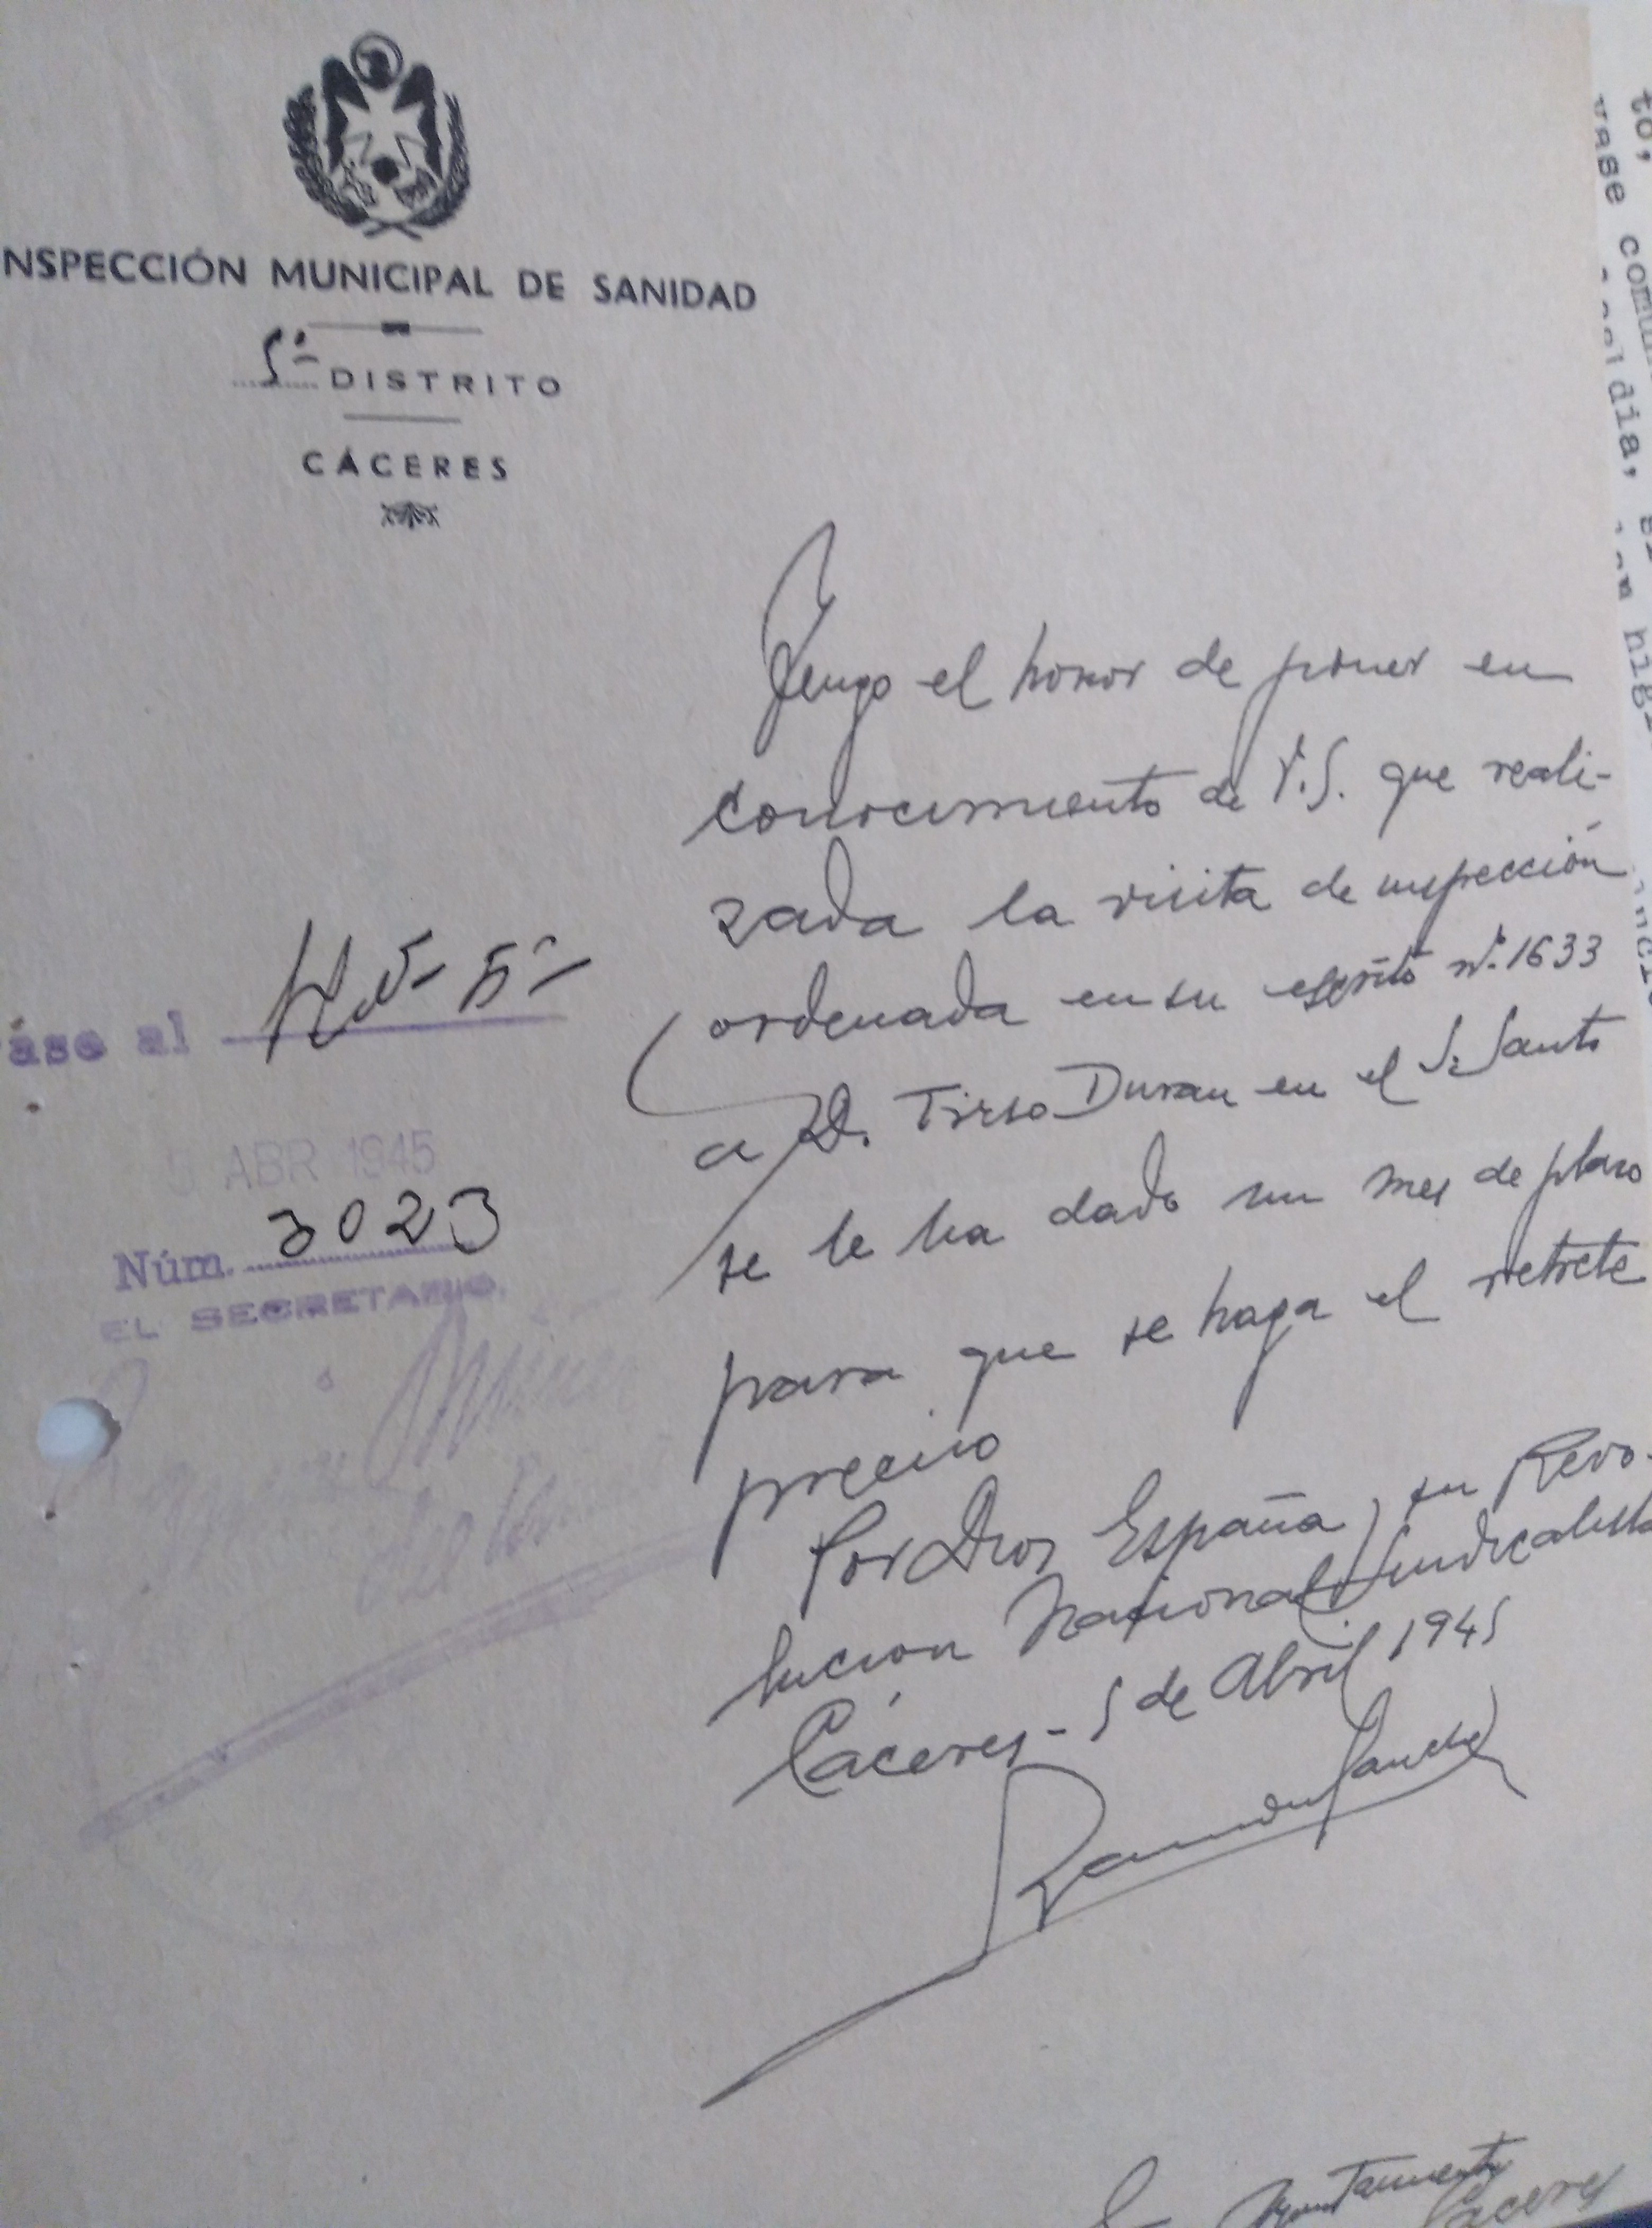 NSPECCIÓN MUNICIPAL DE SANIDAD
5º DISTRITO
CÁCERES
Tengo el honor de poner en
conocimiento de V.S. que reali-
zada la visita de inspección
ordenada en su escrito nº. 1633
a D. Tirso Duran en el S. Santo
se le ha dado un mes de plazo
para que se haga el retrete
preciso
Por Dios, España, su Revo-
lucion Nacional Sindicalista
Cáceres - 5 de Abril 1945
ase al
5 ABR 1945
Núm. 3023
EL SECRETARIO,
Ayuntamiento
Cáceres
to,
vase comun
dia,
hig